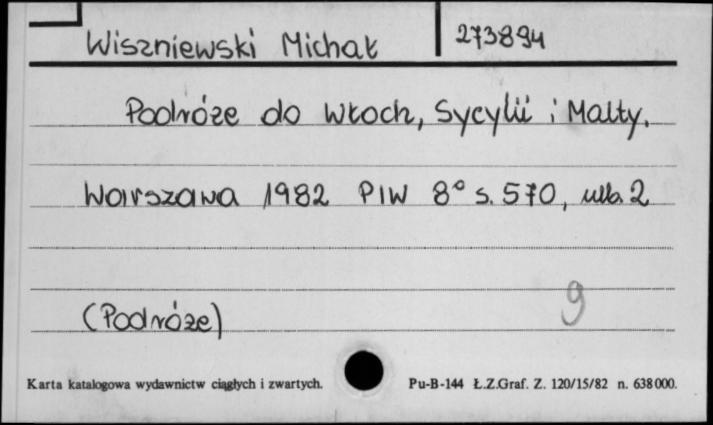 Wiszniewski Michał 273894
Podróże do Włoch, Sycylii i Malty.
Warszawa 1982 PIW 8° s. 570, nlb. 2
(Podróże) 9
Karta katalogowa wydawnictw ciągłych i zwartych. Pu-B-144 Ł.Z.Graf. Z. 120/15/82 n. 638 000.